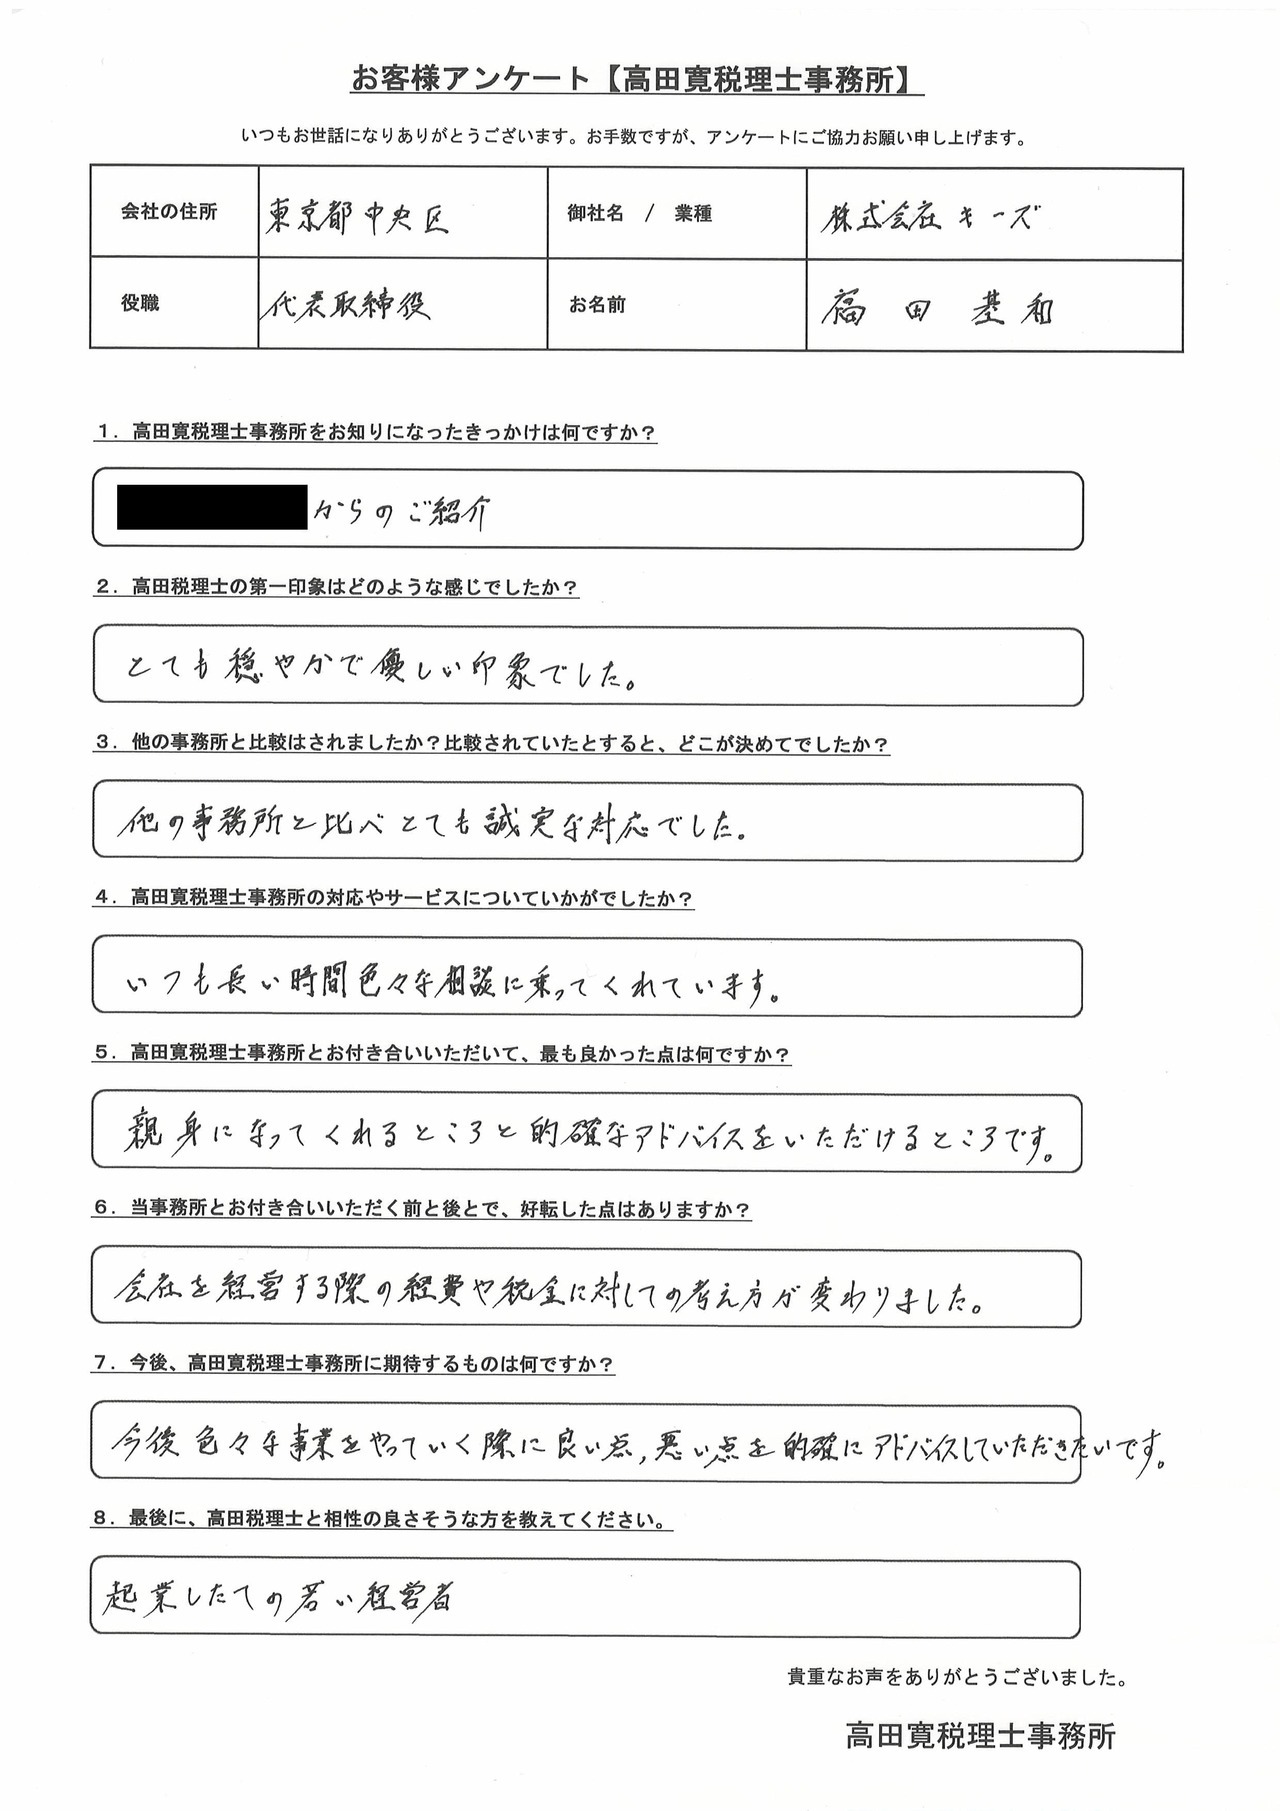 お客様アンケート【高田寛税理士事務所】
いつもお世話になりありがとうございます。お手数ですが、アンケートにご協力お願い申し上げます。
会社の住所 東京都中央区 御社名 / 業種 株式会社キーズ
役職 代表取締役 お名前 福田 基和
1. 高田寛税理士事務所をお知りになったきっかけは何ですか?
からのご紹介
2. 高田税理士の第一印象はどのような感じでしたか?
とても穏やかで優しい印象でした。
3. 他の事務所と比較はされましたか?比較されていたとすると、どこが決めてでしたか?
他の事務所と比べとても誠実な対応でした。
4. 高田寛税理士事務所の対応やサービスについていかがでしたか?
いつも長い時間色々な相談に乗ってくれています。
5. 高田寛税理士事務所とお付き合いいただいて、最も良かった点は何ですか?
親身になってくれるところと的確なアドバイスをいただけるところです。
6. 当事務所とお付き合いいただく前と後とで、好転した点はありますか?
会社を経営する際の経費や税金に対しての考え方が変わりました。
7. 今後、高田寛税理士事務所に期待するものは何ですか?
今後色々な事業をやっていく際に良い点,悪い点を的確にアドバイスしていただきたいです。
8. 最後に、高田税理士と相性の良さそうな方を教えてください。
起業したての若い経営者
貴重なお声をありがとうございました。
高田寛税理士事務所